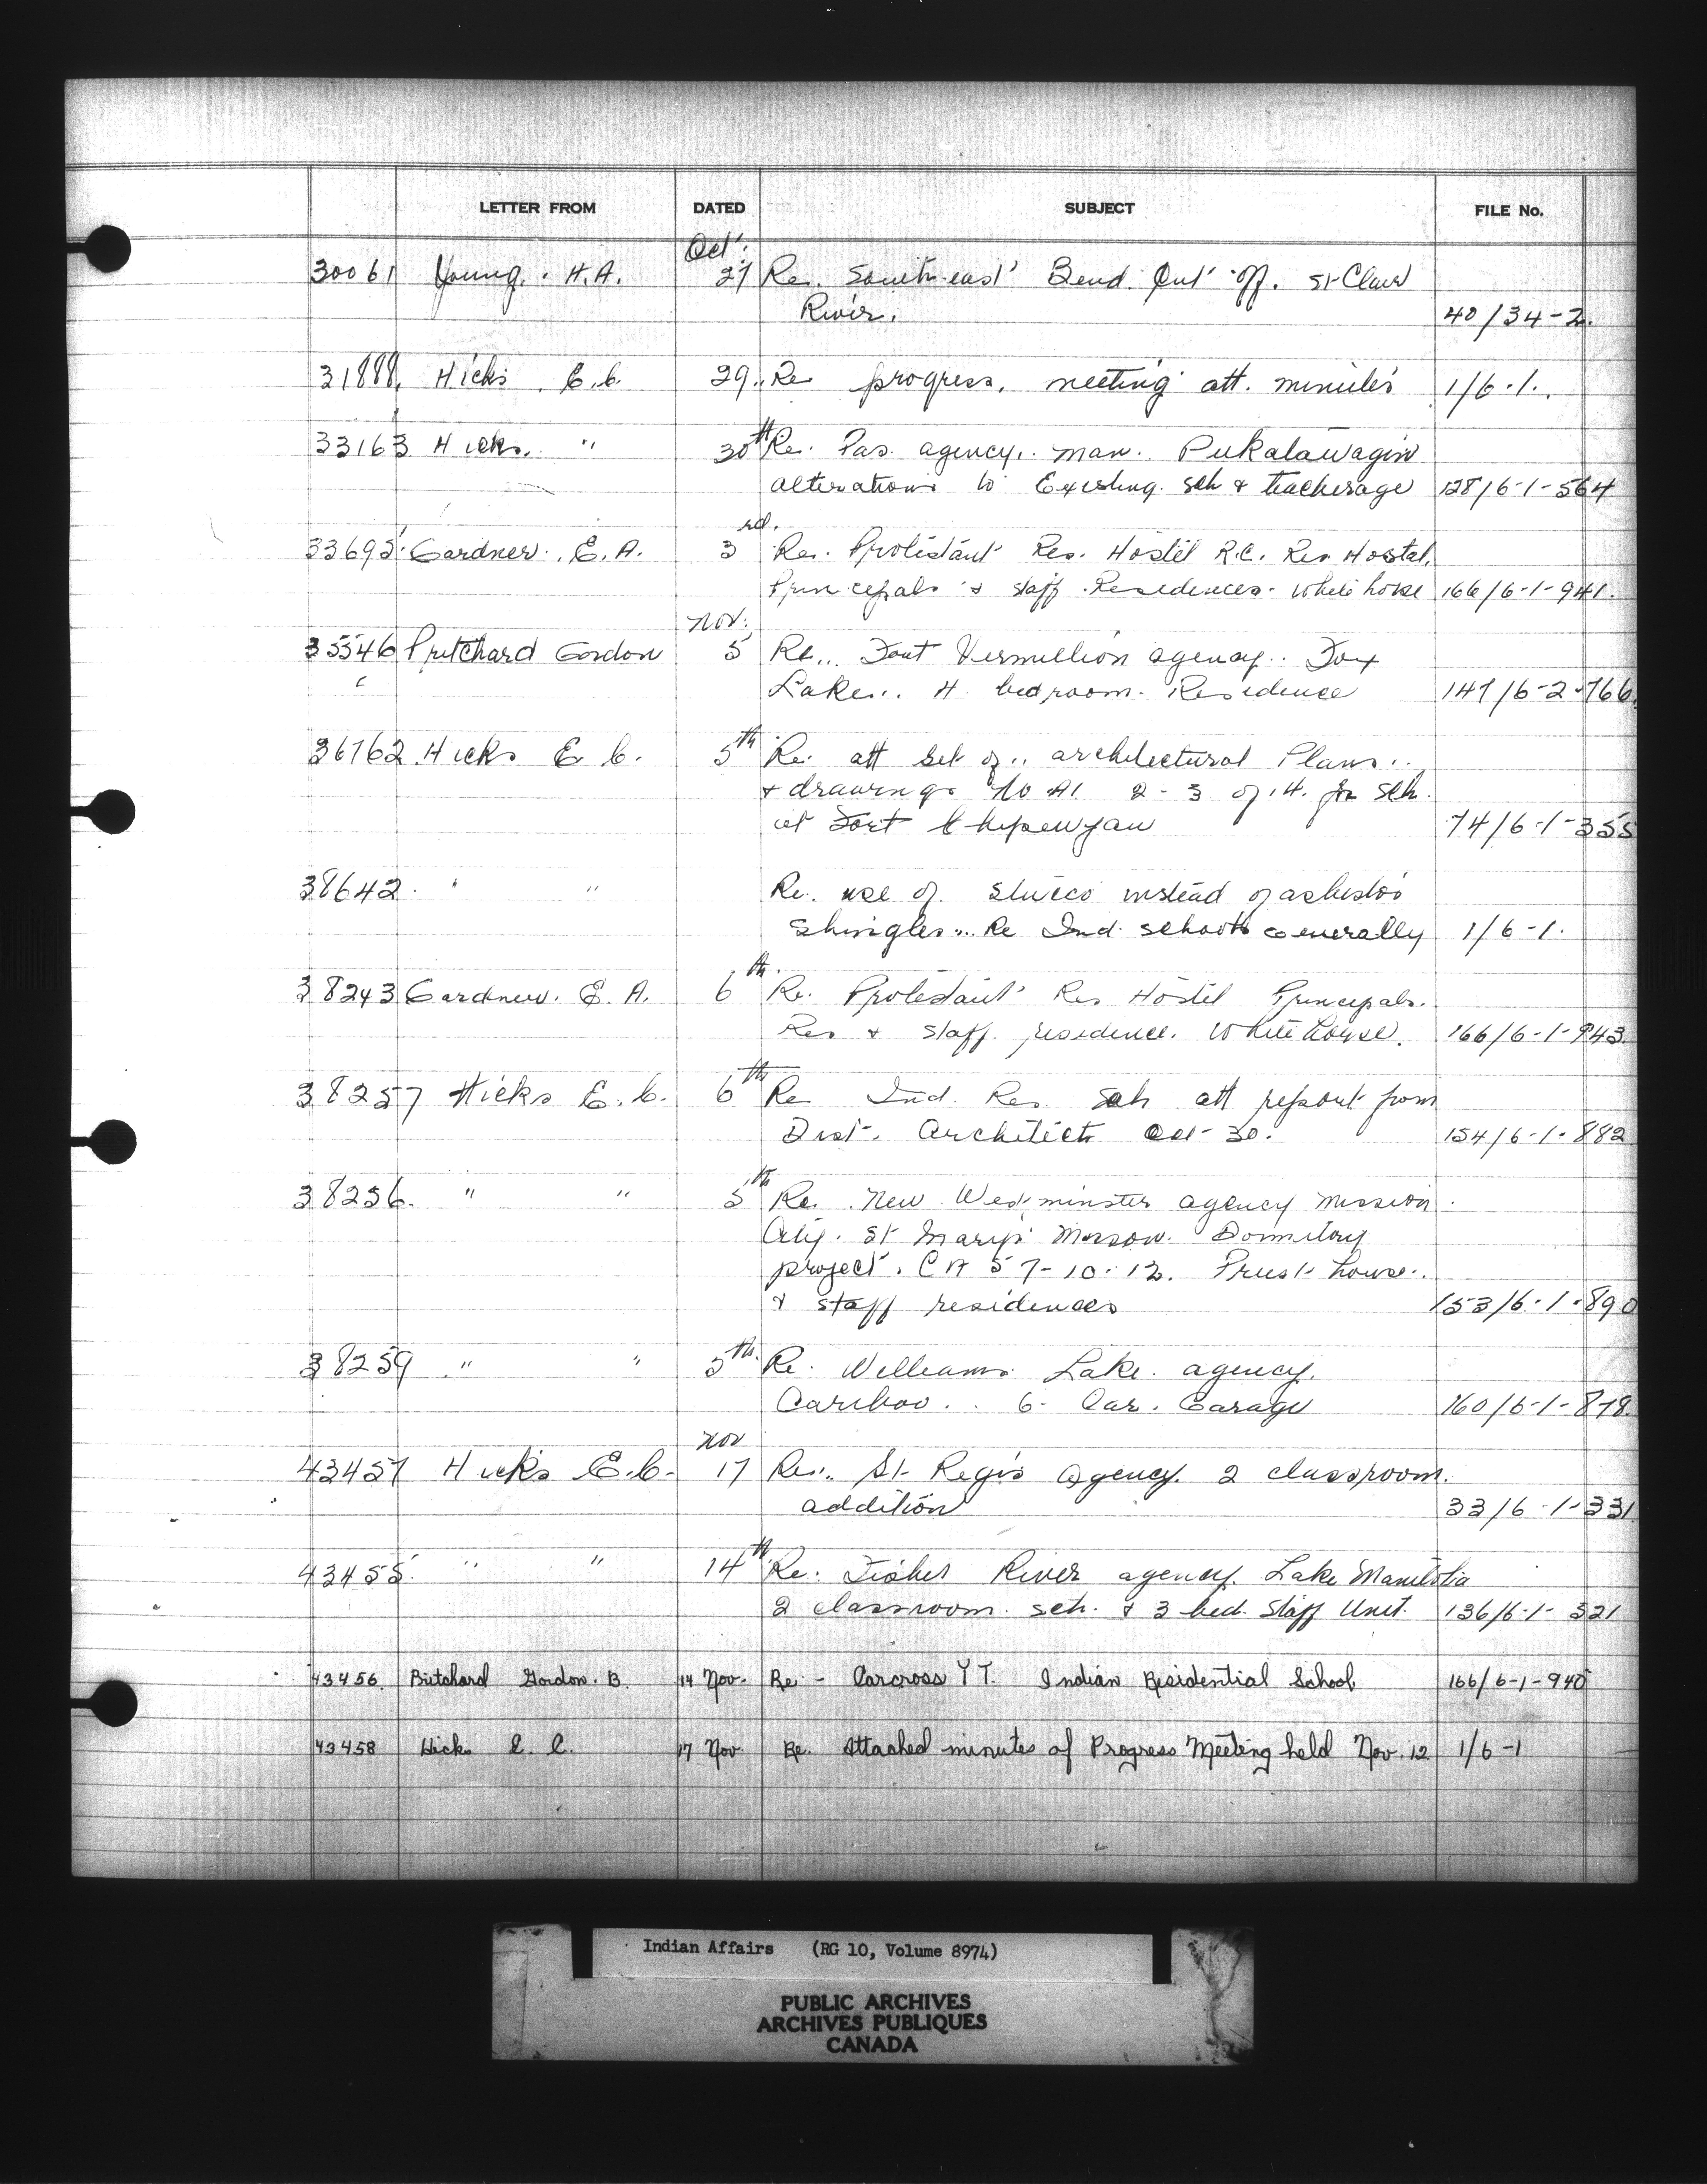 LETTER FROM DATED SUBJECT FILE No.
Oct.
30061 Young. H.A. 27 Re. South-east Bend Cut off. St Clair
River. 40/34-2.
31888. Hicks. E.C. 29. Re progress. meeting att. minutes 1/6-1.
33163 Hicks. " 30th Re. Pas. agency. man. Pukatawagin
alterations to Existing sch & teacherage 128/6-1-564
33695 Gardner. E.A. 3rd. Re. Protestant Res. Hostel R.C. Res Hostel,
Principals & staff Residences. White horse 166/6-1-941.
Nov.
35546 Pritchard Gordon 5 Re.. Fort Vermillion agency.. Fox
Lake.. 4. bedroom. Residence 147/6-2-766.
36762 Hicks E C. 5th Re. att set of.. architectural Plans..
& drawings No A1 2-3 of 14. for sch.
at Fort Chipewyan 74/6-1-355
38642. " " Re. use of stucco instead of asbestos
shingles... Re Ind. schools Generally 1/6-1.
38243 Gardner. E. A. 6th. Re. Protestant Res Hostel Principals.
Res & staff residence. White horse. 166/6-1-943.
38257 Hicks E.C. 6th Re Ind. Res. Sch att report from
Dist. Architect Oct-30. 154/6-1-882
38256. " " 5th Re. New Westminster agency mission
City. St Mary's Mission. Dormitory
project. CA 57-10-12. Priest house..
& staff residences 153/6-1-890
38259 " " 5th. Re. Williams Lake. agency.
Cariboo.. 6- Car. Garage 160/6-1-878.
Nov
43457 Hicks E.C. 17 Re.. St Regis agency. 2 classroom.
addition 33/6-1-331.
43455. " " 14th Re. Fisher River agency. Lake Manitoba
2 classroom. sch. & 3 bed. Staff Unit. 136/6-1-321
43456. Pritchard Gordon. B. 14 Nov. Re - Carcross Y T. Indian Residential School. 166/6-1-940
43458 Hicks E. C. 17 Nov. Re. Attached minutes of Progress Meeting held Nov. 12 1/6-1
Indian Affairs (RG 10, Volume 8974)
PUBLIC ARCHIVES
ARCHIVES PUBLIQUES
CANADA